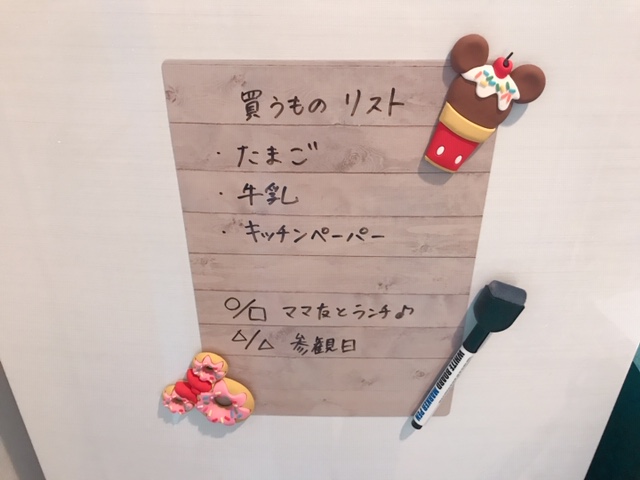 買うもの リスト
・たまご
・牛乳
・キッチンペーパー
○/□ ママ友とランチ♪
△/△ 参観日
WHITE BOARD MARKER PEN